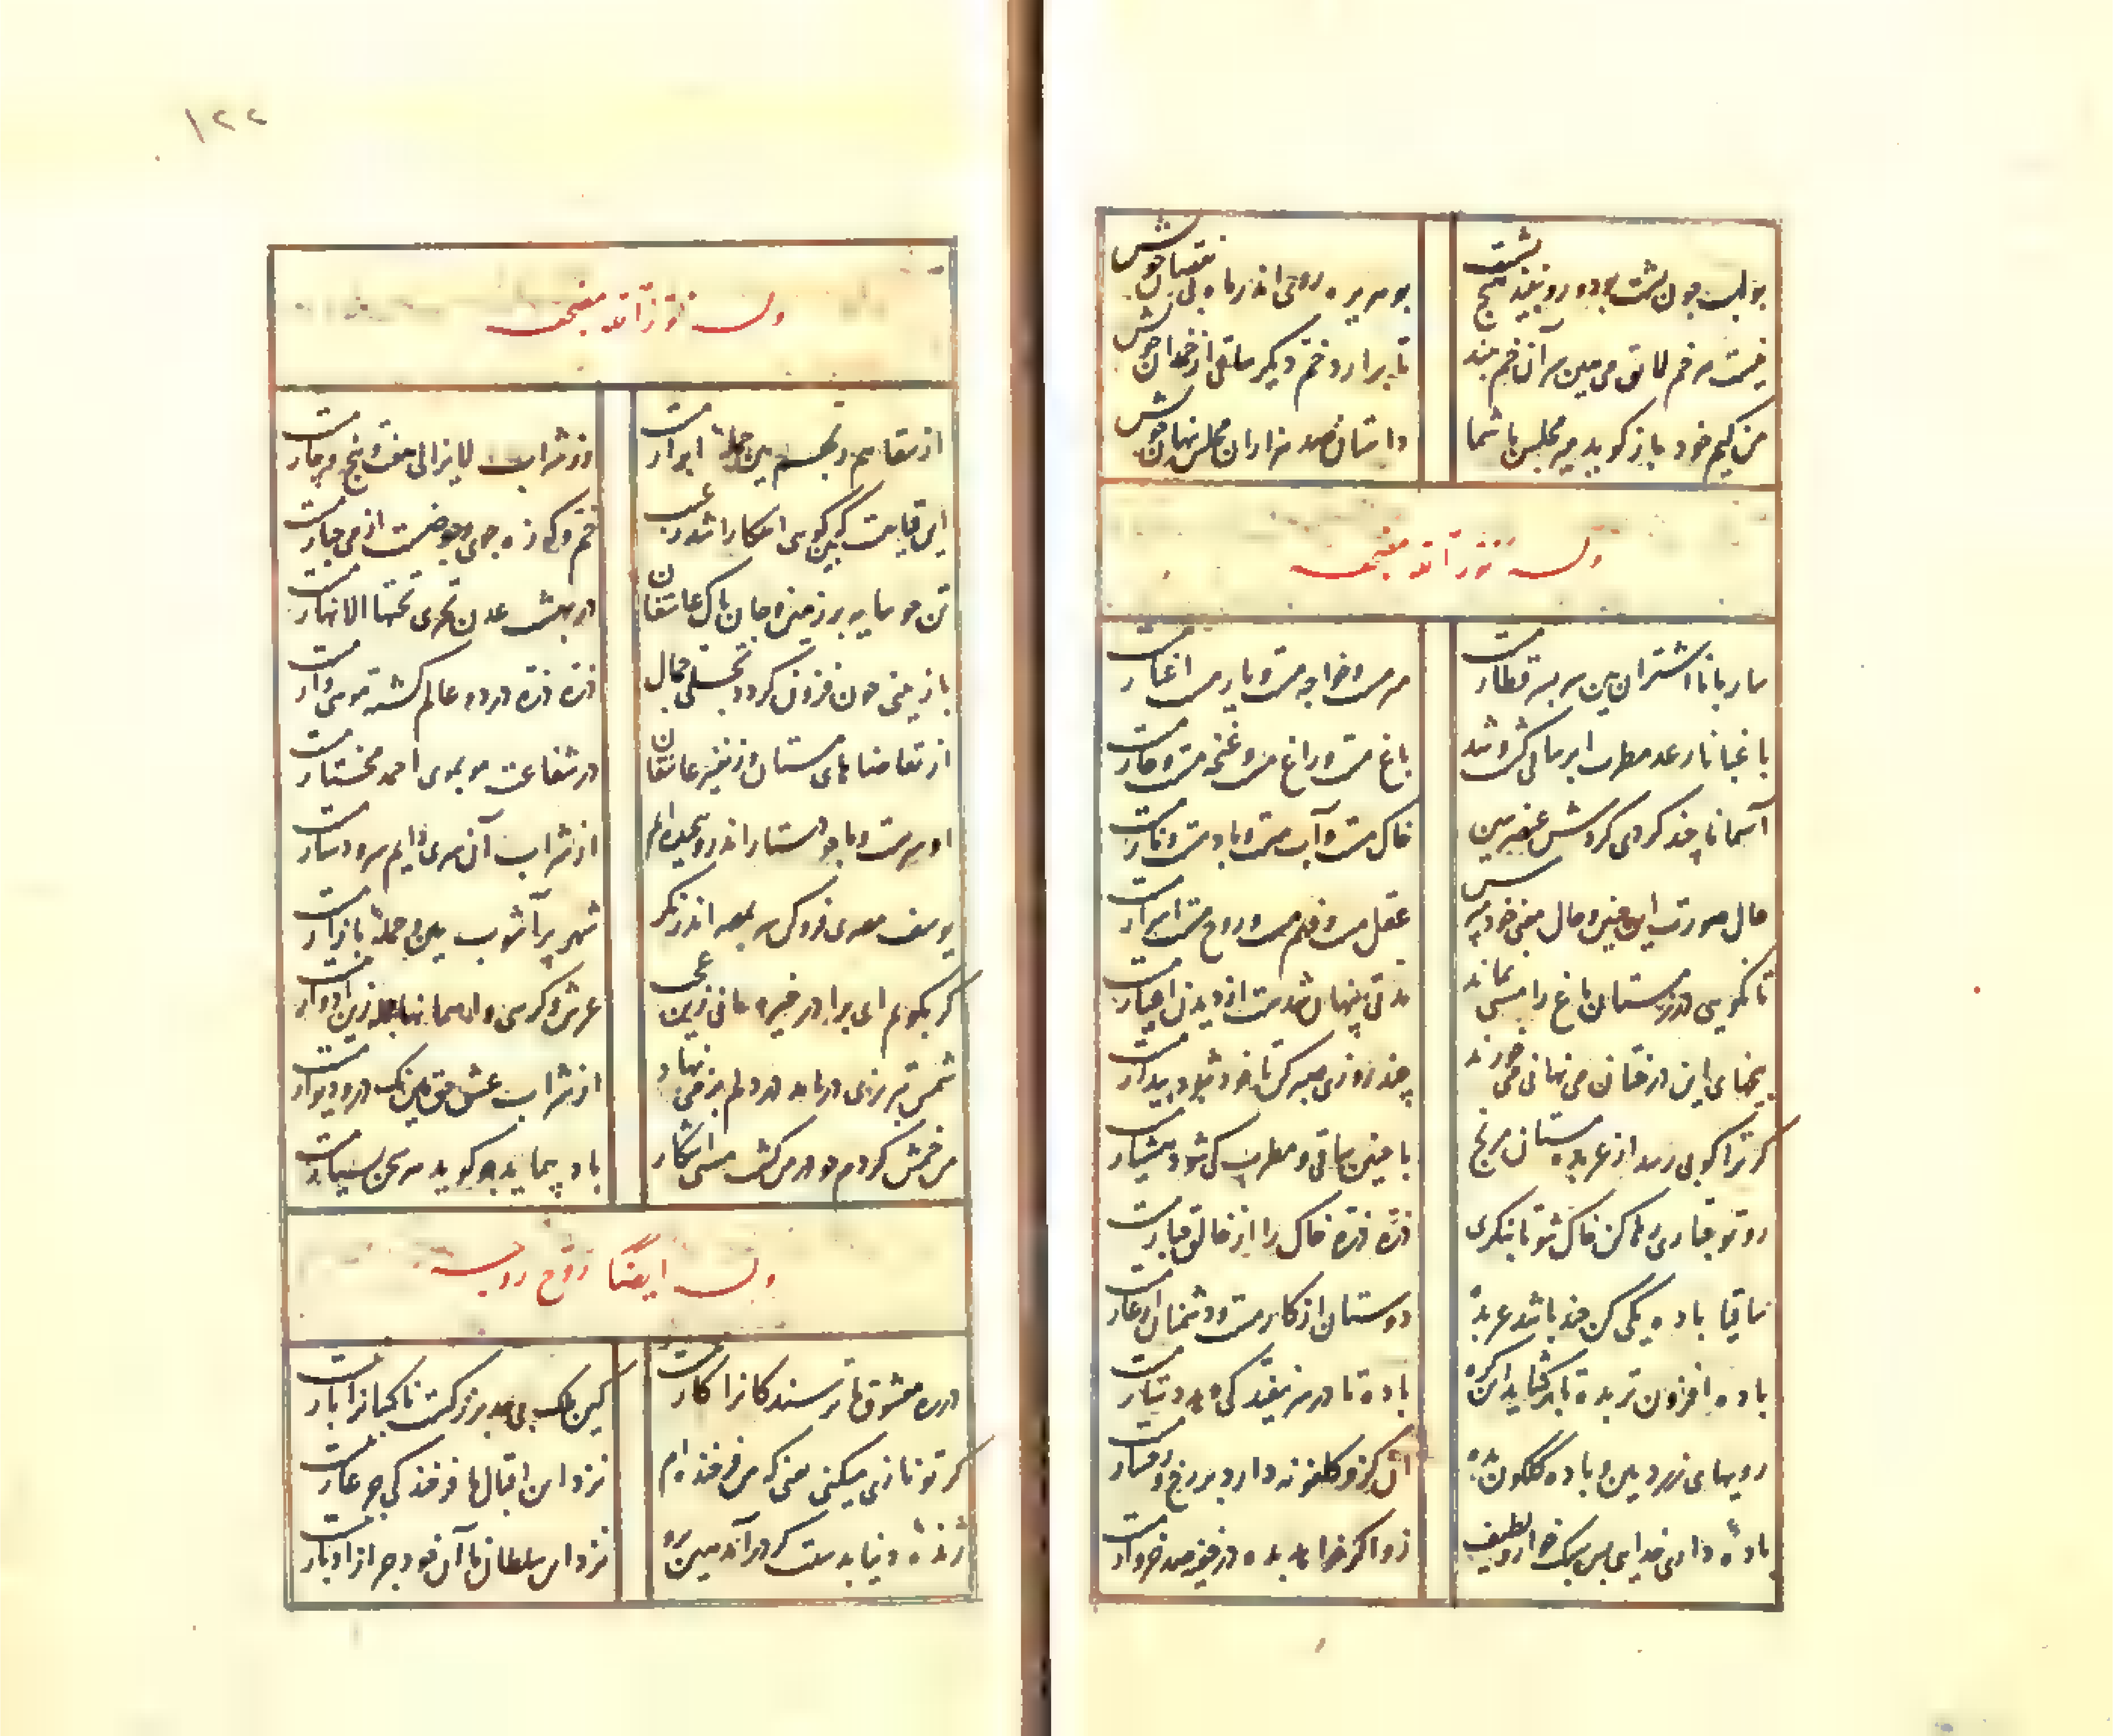 بولهب چون پشت بود و رو نبیند هیچ پشت
بوهریره روحی اندر ماه بی نقصان خوش
نیست هر خم لایق می هین سر آن خم بند
تا برآرد خم دیگر ساقی از خمدان خوش
من کیم خود بازگوید میر مجلس با شما
داستان صد هزاران مجلس پنهان خوش
وله نور الله مضجعه
ساربانا اشتران بین سر بسر قطار مست
میر مست و خواجه مست و یار مست اغیار مست
باغبانا رعد مطرب ابر ساقی گشت و شد
باغ مست و راغ مست و غنچه مست و خار مست
آسمانا چند گردی گردش عنصر ببین
خاک مست و آب مست و باد مست و نار مست
حال صورت این چنین و حال معنی خود مپرس
عقل مست و فهم مست و روح مست اسرار مست
تا نگویی در زمستان باغ را مستی نماند
مدتی پنهان شدست از دیدن اغیار مست
بیخهای این درختان می نهانی می خورند
چند روزی صبر کن تا خود شود بیدار مست
گر ترا کوبی رسد از عربده مستان مرنج
با چنین ساقی و مطرب کی شود هشیار مست
رو تو جباری رها کن خاک شو تا بنگری
ذره ذره خاک را از خالق جبار مست
ساقیا باده یکی کن چند باشد عربده
دوستان از کار مست و دشمنان از عار مست
باده افزون تر بده تا بر گشاید این گره
باده تا در سر نیفتد کی دهد دستار مست
رویهای زرد بین و باده گلگون بده
زان کزو گلگونه دارد بر رخ و رخسار مست
باده داری خدایی بس سبک خوار و لطیف
زو اگر خواهد بدهد در خود صد خروار مست
١٢٢
وله نور الله مضجعه
از سقاهم ربهم بین جمله ابرار مست
وز شراب لایزالی هفت و پنج و چار مست
این قیامت بین که گویی آشکارا شد ز غیب
خم و کوزه جوی و حوضست از می جبار مست
تن چو سایه بر زمین و جان پاک عاشقان
در بهشت عدن تجری تحتها الانهار مست
باز معنی چون فزون گردد تجلی جمال
ذره ذره در دو عالم گشته موسی وار مست
از تقاضاهای مستان وز نفیر عاشقان
در شفاعت مو بموی احمد مختار مست
او سر مست و ما چو دستار اندر و پیچیده‌ایم
از شراب آن سری دایم سر و دستار مست
یوسف مصری فرو کن سر بمصر اندر نگر
شهر پر آشوب بین و جمله بازار مست
گر بگویم ای برادر خیره مانی زین عجب
عرش و کرسی و آسمانها جمله زین ادوار مست
شمس تبریزی درآمد در دلم بزمی نهاد
از شراب عشق حق بین تک در و دیوار مست
من خمش کردم چو دزدم کشت مستی آشکار
باد پیماید چو گوید هر سخن بسیار مست
وله ایضا روح روحه
در ره معشوق ما ترسندگانرا کار نیست
کین ملک بی حد بزرگست ناکسانرا بار نیست
گر تو نازی میکنی یعنی که من فرخنده‌ام
نزد این اقبال ما فرخندگی جز عار نیست
ژنده دنیا بدست گر درآید همین برو
نزد این سلطان ما آن خود جز از ادبار نیست